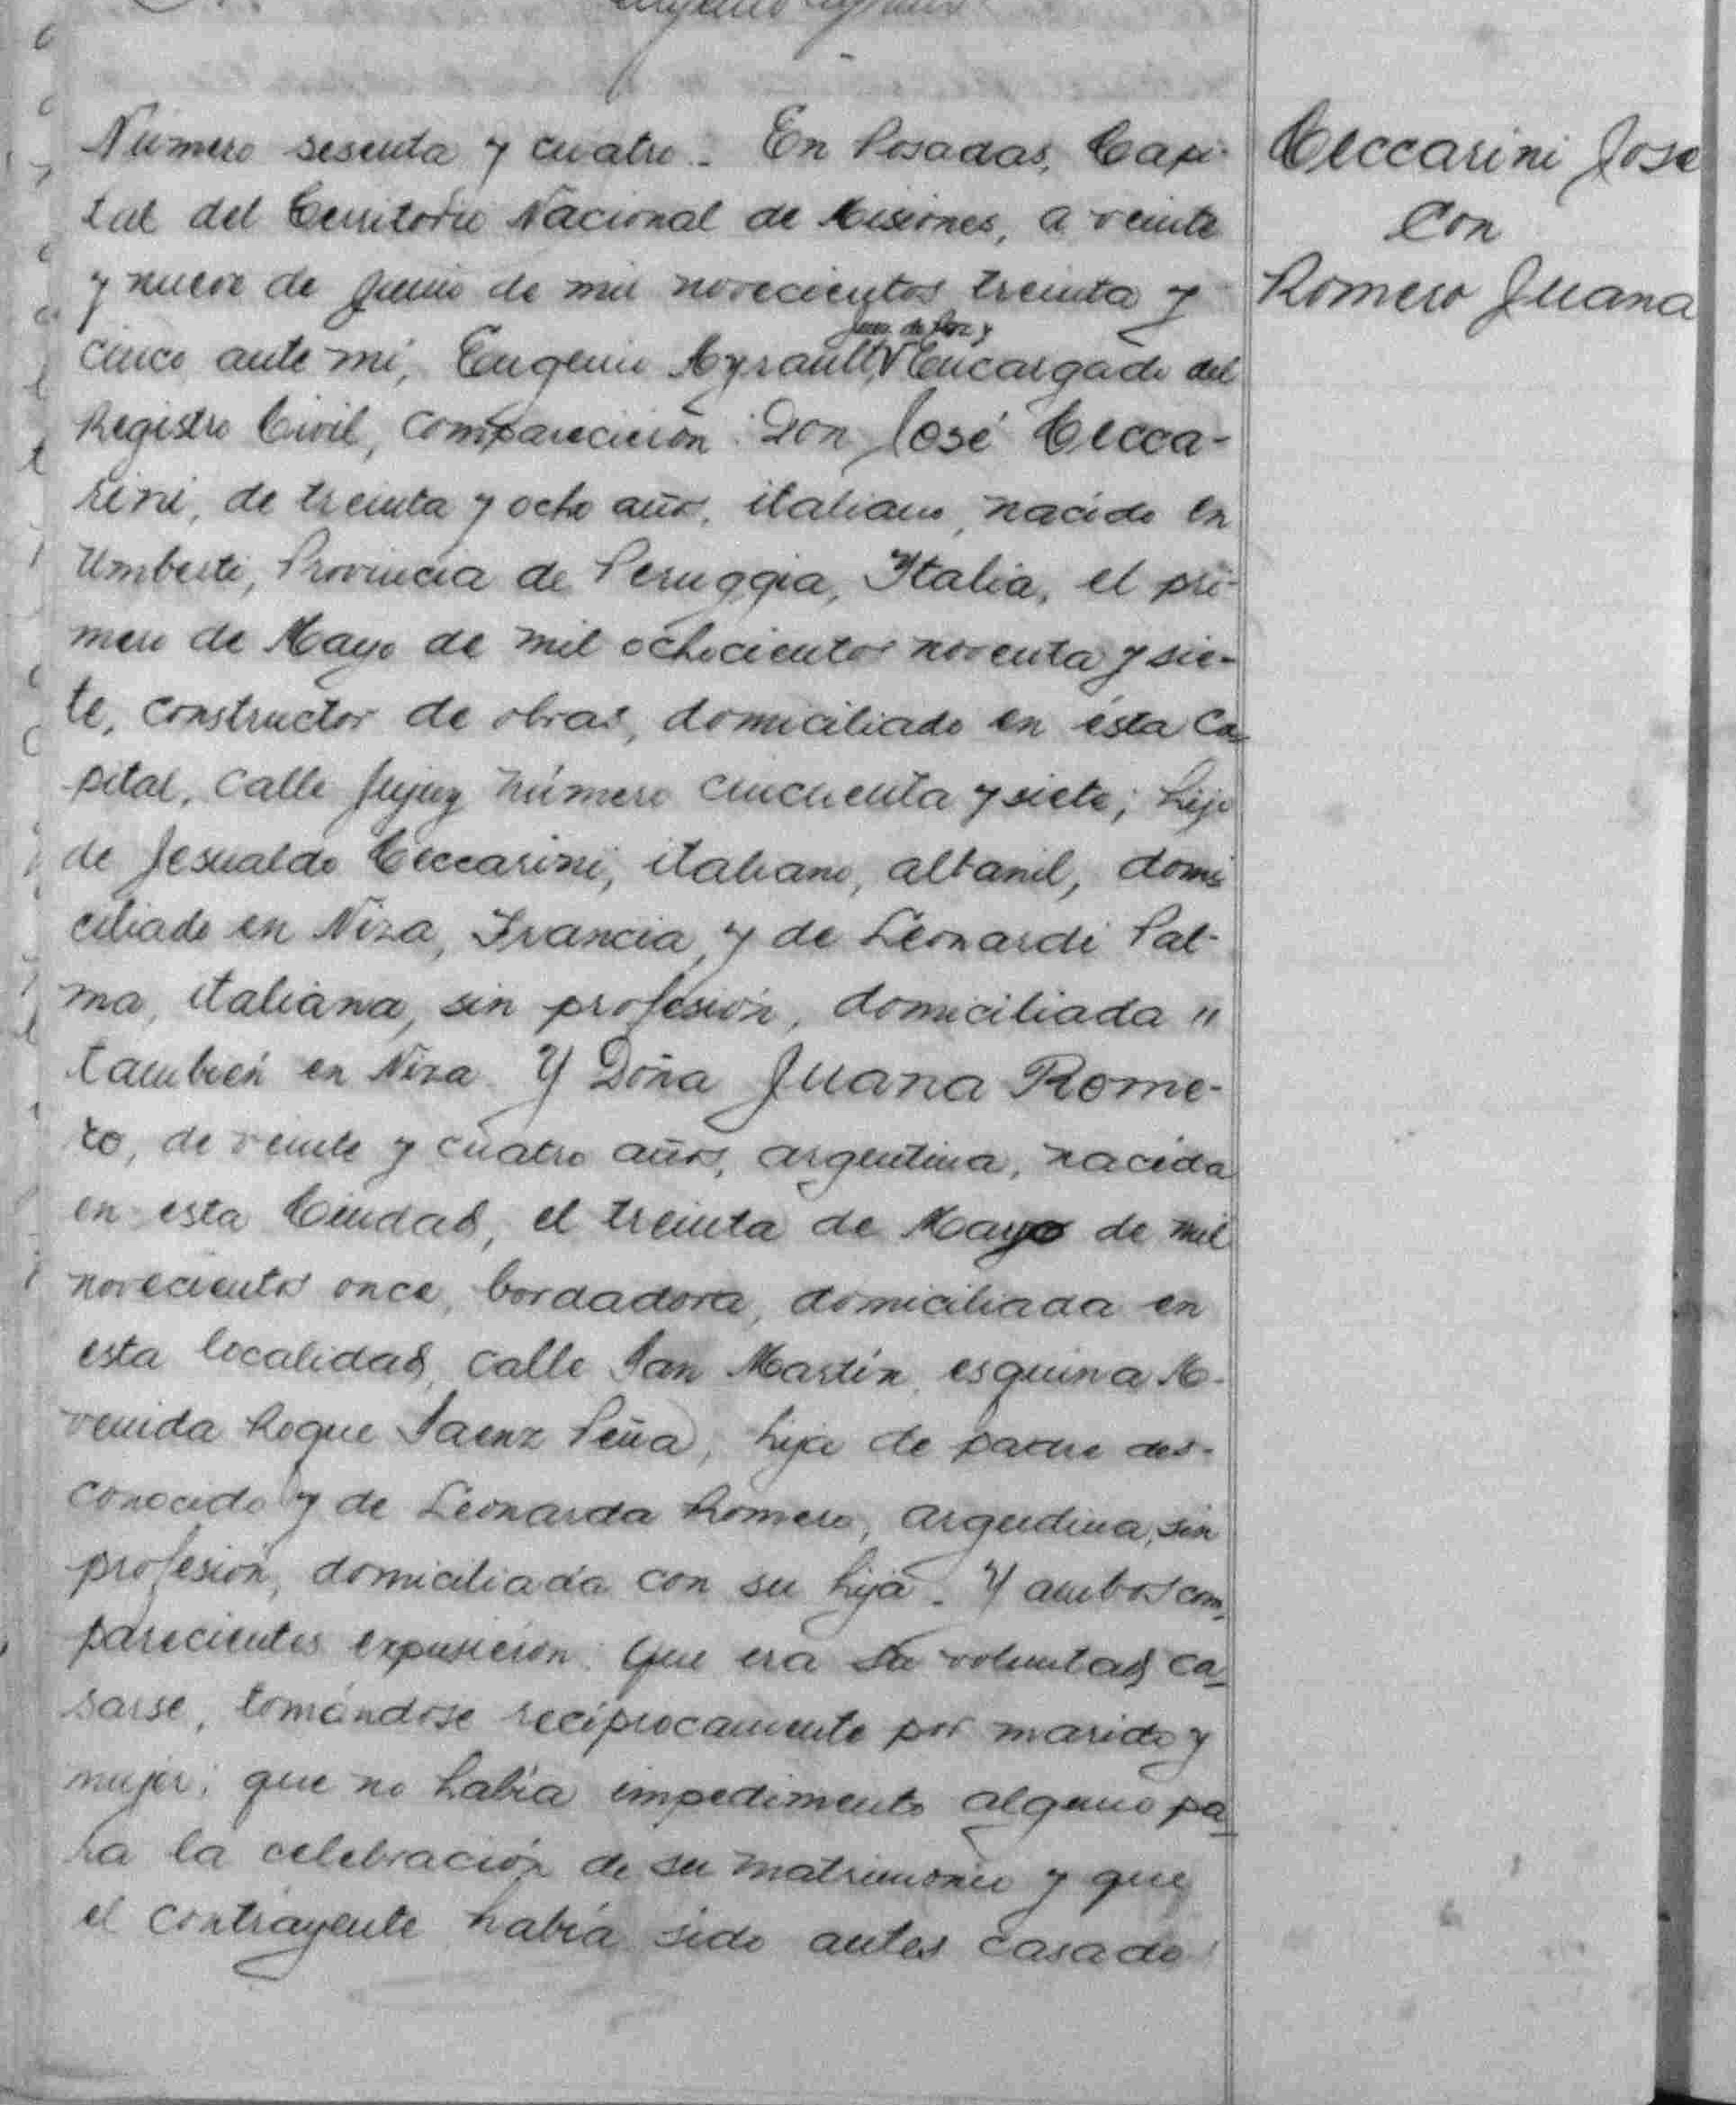 Número sesenta y cuatro.- En Posadas, Capi-
tal del Territorio Nacional de Misiones, a veinte
y nueve de Junio de mil novecientos treinta y
cinco ante mi, Eugenio Ayrault, Juez de Paz y Encargado del
Registro Civil, comparecieron: Don José Ceccа-
rini, de treinta y ocho años, italiano, nacido en
Umberti, Provincia de Peruggia, Italia, el pri-
mero de Mayo de mil ochocientos noventa y sie-
te, constructor de obras, domiciliado en ésta Ca-
pital, calle Jujuy número cincuenta y siete; hijo
de Jesualdo Ceccarini, italiano, albanil, domi
ciliado en Niza, Francia, y de Leonardi Pal-
ma, italiana, sin profesión, domiciliada "
también en Niza. Y Doña Juana Rome-
ro, de veinte y cuatro años, argentina, nacida
en esta Ciudad, el treinta de Mayo de mil
novecientos once, bordadora, domiciliada en
esta localidad, calle San Martín, esquina A-
venida Roque Saenz Peña, hija de padre des-
conocido y de Leonarda Romero, argentina, sin
profesión, domiciliada con su hija. Y ambos com-
parecientes expusieron: Que era su voluntad ca-
sarse, tomándose recíprocamente por marido y
mujer; que no había impedimento alguno pa-
ra la celebración de su matrimonio y que
el contrayente había sido antes casado
Ceccarini José
con
Romero Juana